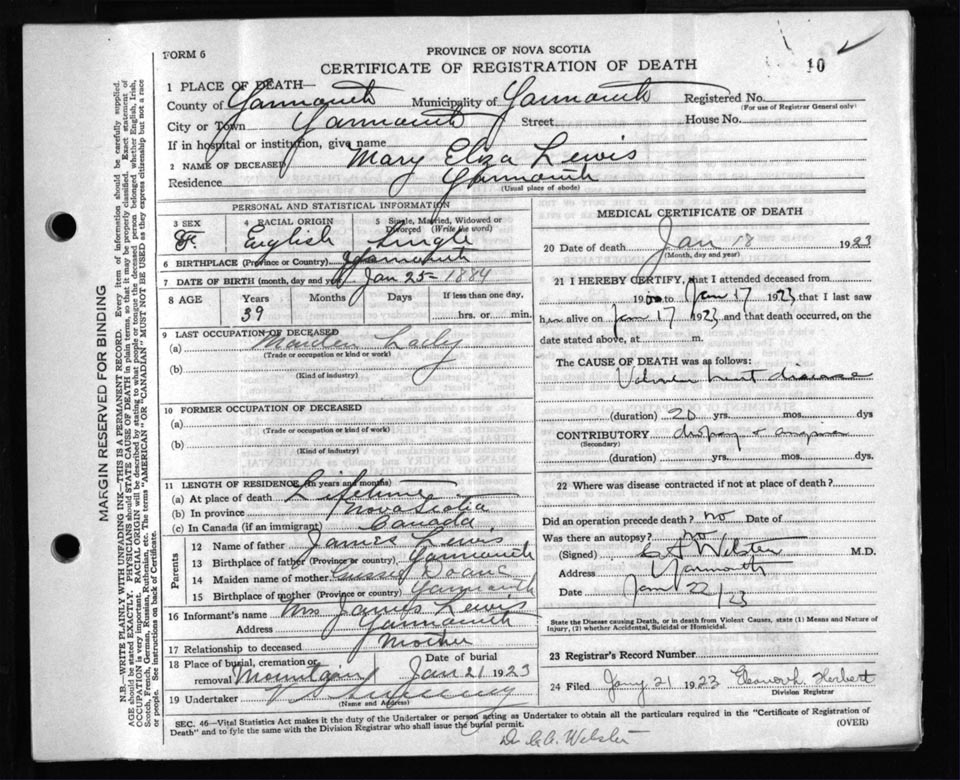 FORM 6
PROVINCE OF NOVA SCOTIA
CERTIFICATE OF REGISTRATION OF DEATH
10
1 PLACE OF DEATH—
County of Yarmouth Municipality of Yarmouth Registered No.
(For use of Registrar General only)
City or Town Yarmouth Street House No.
If in hospital or institution, give name
2 NAME OF DECEASED Mary Eliza Lewis
Residence Yarmouth
(Usual place of abode)
PERSONAL AND STATISTICAL INFORMATION
3 SEX 4 RACIAL ORIGIN 5 Single, Married, Widowed or Divorced (Write the word)
F. English Single
6 BIRTHPLACE (Province or Country) Yarmouth
7 DATE OF BIRTH (month, day and year) Jan 25 1884
8 AGE Years Months Days If less than one day,
39 hrs. or min.
9 LAST OCCUPATION OF DECEASED
(a) Maiden Lady
(Trade or occupation or kind or work)
(b)
(Kind of industry)
10 FORMER OCCUPATION OF DECEASED
(a)
(Trade or occupation or kind or work)
(b)
(Kind of industry)
11 LENGTH OF RESIDENCE (in years and months)
(a) At place of death Lifetime
(b) In province Nova Scotia
(c) In Canada (if an immigrant) Canada
Parents
12 Name of father James Lewis
13 Birthplace of father (Province or country) Yarmouth
14 Maiden name of mother Doane
15 Birthplace of mother (Province or country) Yarmouth
16 Informant's name Mrs James Lewis
Address Yarmouth
17 Relationship to deceased Mother
18 Place of burial, cremation or removal Mountain Date of burial Jan 21 1923
19 Undertaker
(Name and Address)
MEDICAL CERTIFICATE OF DEATH
20 Date of death Jan 18 1923
(Month, day and year)
21 I HEREBY CERTIFY, that I attended deceased from
19 to Jan 17 1923 that I last saw
h alive on Jan 17 1923 and that death occurred, on
date stated above, at m.
The CAUSE OF DEATH was as follows:
Valvular heart disease
(duration) 20 yrs. mos. dys
CONTRIBUTORY dropsy + angina
(Secondary)
(duration) yrs. mos. dys.
22 Where was disease contracted if not at place of death?
Did an operation precede death? no Date of
Was there an autopsy? no
(Signed) Webster M.D.
Address Yarmouth
Date Jan 22/23
State the Disease causing Death, or in death from Violent Causes, state (1) Means and Nature of Injury, (2) whether Accidental, Suicidal or Homicidal.
23 Registrar's Record Number
24 Filed Jany 21 1923 Herbert
Division Registrar
SEC. 46—Vital Statistics Act makes it the duty of the Undertaker or person acting as Undertaker to obtain all the particulars required in the "Certificate of Registration of
Death" and to fyle the same with the Division Registrar who shall issue the burial permit. (OVER)
Dr. Webster
MARGIN RESERVED FOR BINDING
N.B.—WRITE PLAINLY WITH UNFADING INK—THIS IS A PERMANENT RECORD. Every item of information should be carefully supplied.
AGE should be stated EXACTLY. PHYSICIANS should STATE CAUSE OF DEATH in plain terms, so that it may be properly classified. Exact statement of
OCCUPATION is very important. RACIAL ORIGIN will be described by stating to what people or tongue the deceased person belonged whether English, Irish,
Scotch, French, German, Russian, Ruthenian, etc. The terms "AMERICAN" OR "CANADIAN" MUST NOT BE USED as they express citizenship but not a race
or people. See instructions on back of Certificate.